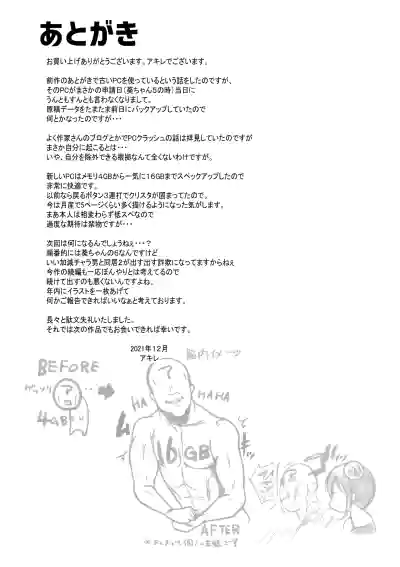 あとがき
お買い上げありがとうございます。アキレでございます。
前作のあとがきで古いPCを使っているという話をしたのですが、
そのPCがまさかの申請日(葵ちゃん5の時)当日に
うんともすんとも言わなくなりまして。
原稿データをたまたま前日にバックアップしていたので
何とかなったのですが・・・
よく作家さんのブログとかでPCクラッシュの話は拝見していたのですが
まさか自分に起こるとは・・・
いや、自分を除外できる根拠なんて全くないわけですが。
新しいPCはメモリ4GBから一気に16GBまでスペックアップしたので
非常に快適です。
以前なら戻るボタン3連打でクリスタが固まってたので。
今は月産で5ページくらい多く描けるようになった気がします。
まあ本人は相変わらず低スペなので
過度な期待は禁物ですが・・・
次回は何になるんでしょうねぇ・・・?
順番的には葵ちゃんの6なんですけど
いい加減チャラ男と同居2が出す出す詐欺になってますからねぇ
今作の続編も一応ぼんやりとは考えてるので
続けて出すのも悪くないんですよね。
年内にイラストを一枚あげて
何かご報告できればいいなぁと考えております。
長々と駄文失礼いたしました。
それでは次の作品でもお会いできれば幸いです。
2021年12月
アキレ
脳内イメージ
BEFORE
ゲッソリ
?
4GB
?
HA
HA
HAHA
ム
16GB
AFTER